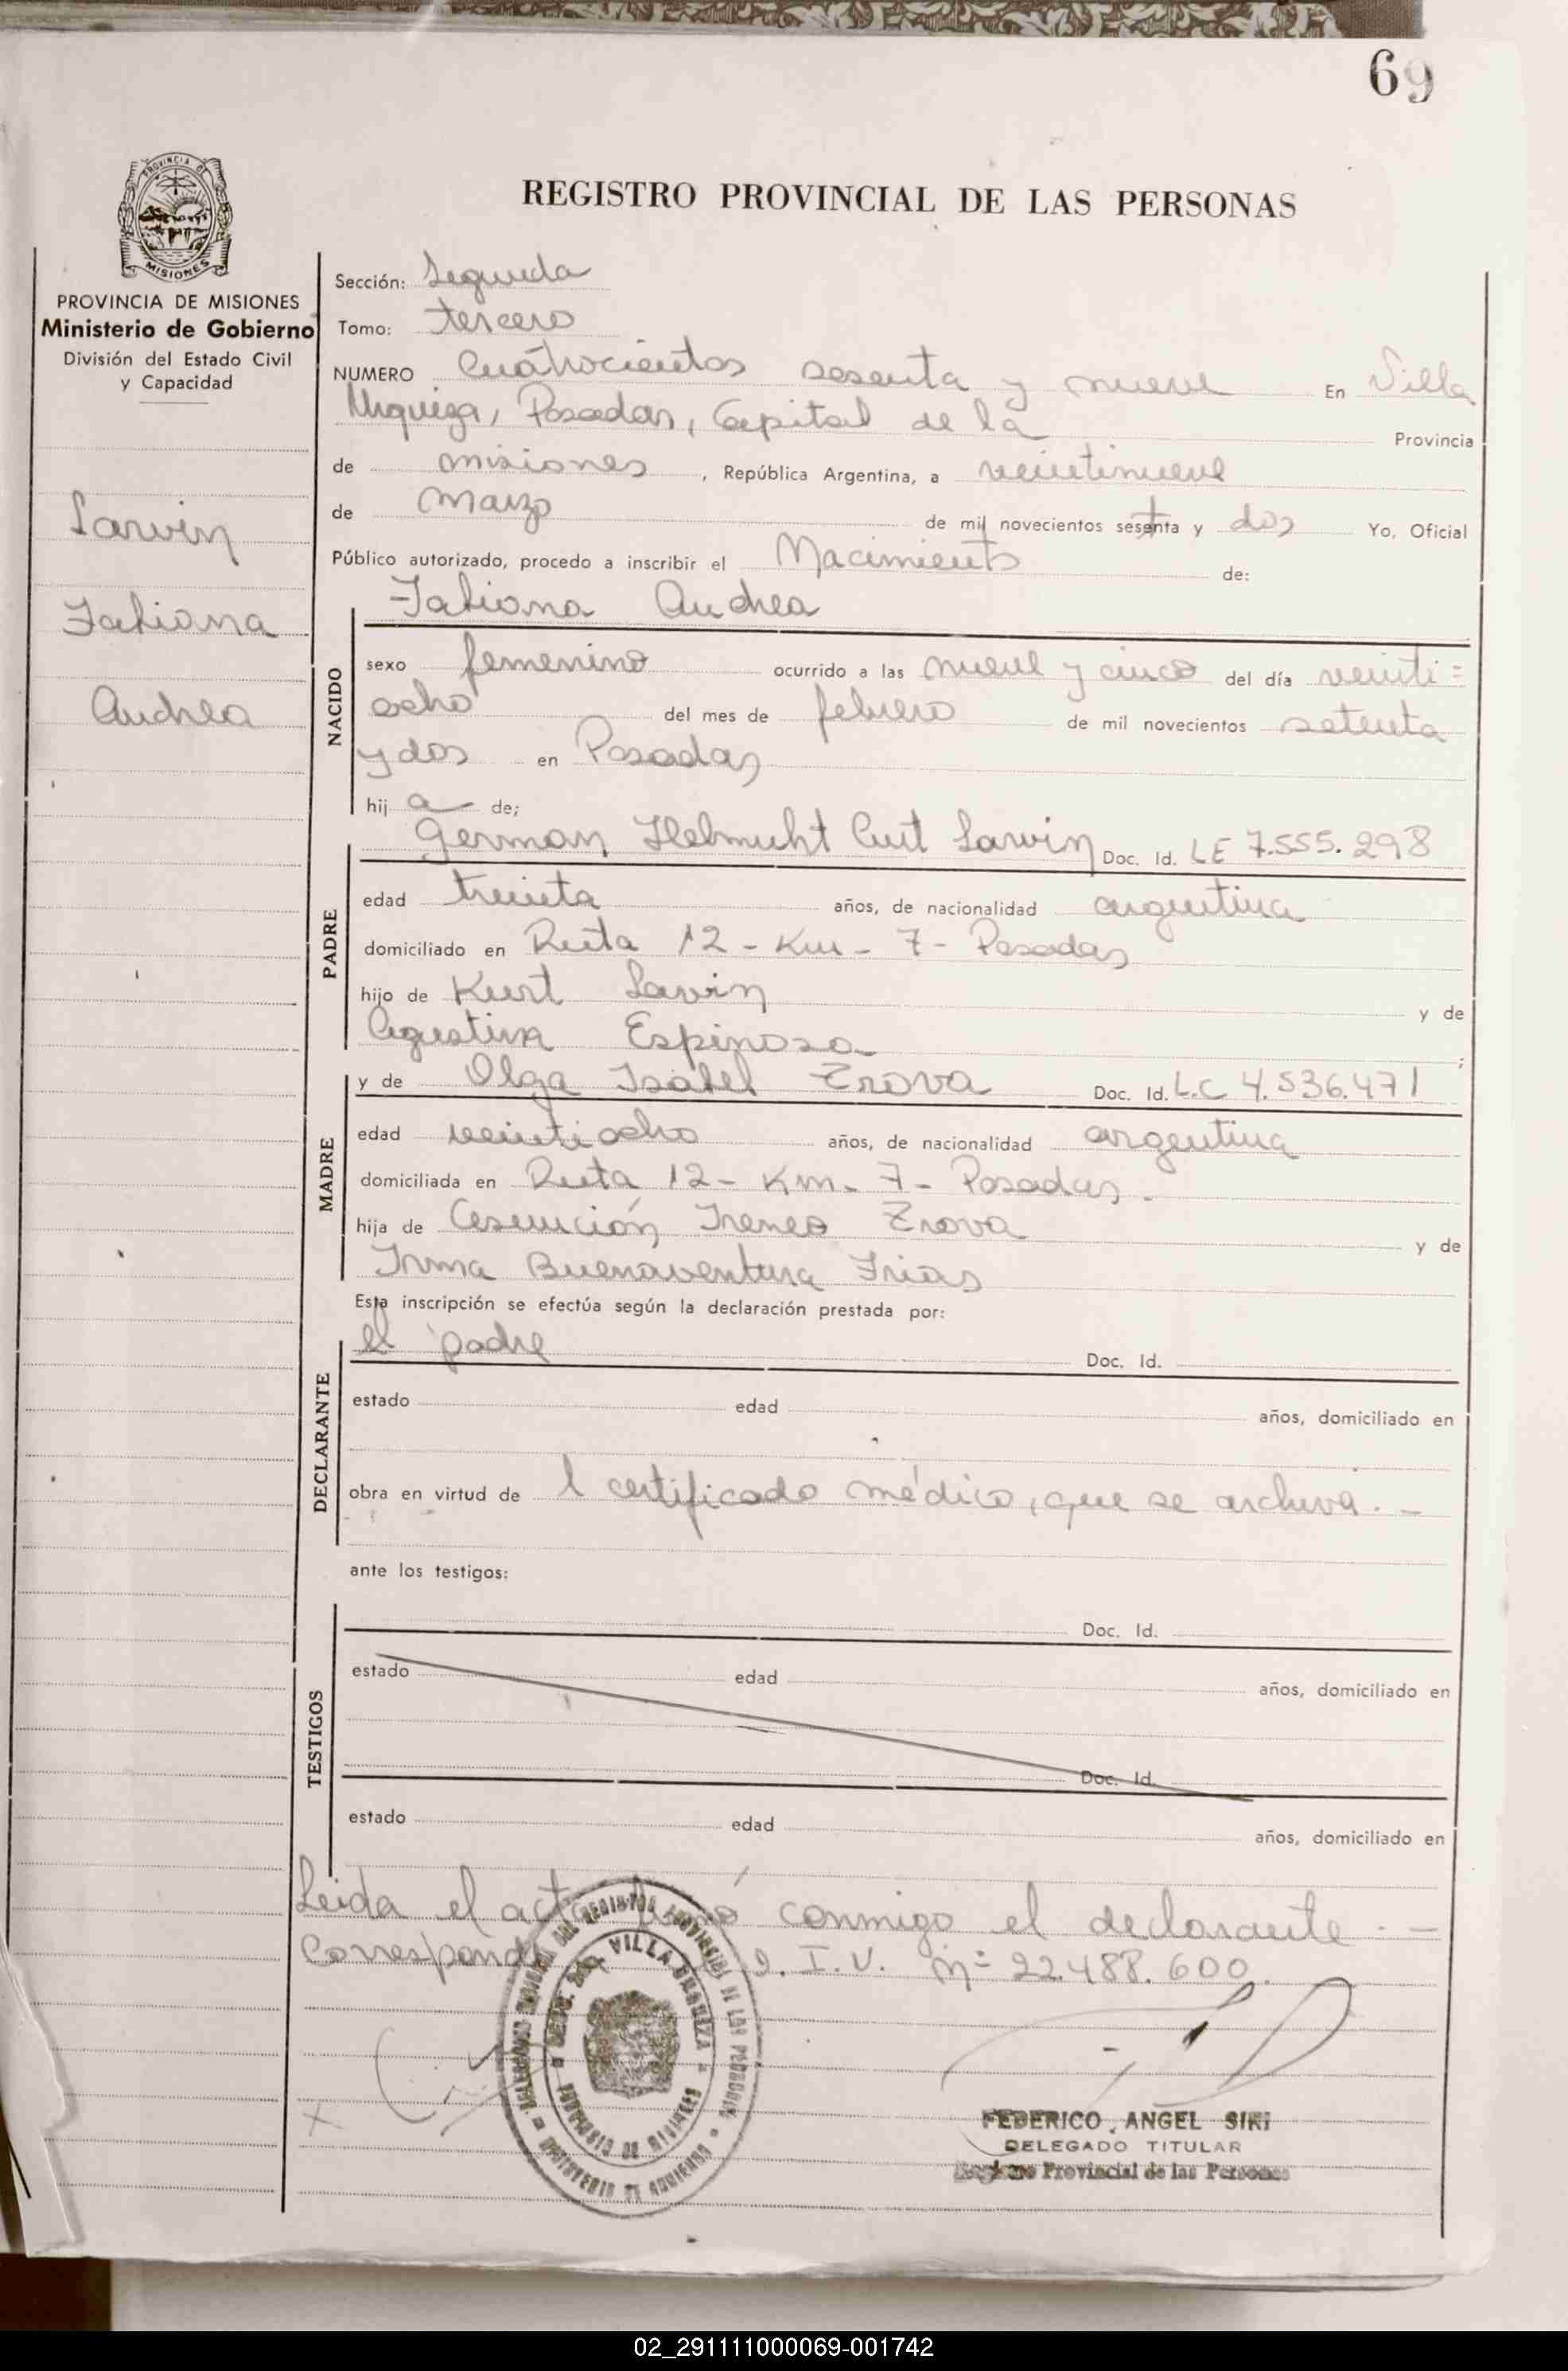 69
PROVINCIA DE
MISIONES
REGISTRO PROVINCIAL DE LAS PERSONAS
PROVINCIA DE MISIONES
Ministerio de Gobierno
División del Estado Civil
y Capacidad
Lawin
Tatiana
Andrea
Sección: Segunda
Tomo: tercero
NUMERO Cuatrocientos sesenta y nueve En Villa
Urquiza, Posadas, Capital de la Provincia
de misiones, República Argentina, a veintinueve
de Marzo de mil novecientos setenta y dos Yo, Oficial
Público autorizado, procedo a inscribir el Nacimiento de:
Tatiana Andrea
NACIDO
sexo femenino ocurrido a las nueve y cinco del día veinti=
ocho del mes de febrero de mil novecientos setenta
y dos en Posadas
hij a de;
PADRE
German Helmuht Curt Lawin Doc. Id. LE 7.555.298
edad treinta años, de nacionalidad argentina
domiciliado en Ruta 12 - Km - 7 - Posadas
hijo de Kurt Lawin y de
Agustina Espinosa ;
MADRE
y de Olga Isabel Erova Doc. Id. L.C 4.536.471
edad veintiocho años, de nacionalidad argentina
domiciliada en Ruta 12 - Km. 7 - Posadas.
hija de Ireneo Erova y de
Irma Buenaventura Frias
Esta inscripción se efectúa según la declaración prestada por:
DECLARANTE
el padre Doc. Id.
estado edad años, domiciliado en
obra en virtud de l certificado médico, que se archiva. -
ante los testigos:
TESTIGOS
Doc. Id.
estado edad años, domiciliado en
Doc. Id.
estado edad años, domiciliado en
Leida el acta firmó conmigo el declarante. -
Corresponde I. V. nº 22.488.600.
VILLA URQUIZA
FEDERICO ANGEL SIRI
DELEGADO TITULAR
Registro Provincial de las Personas
02_291111000069-001742